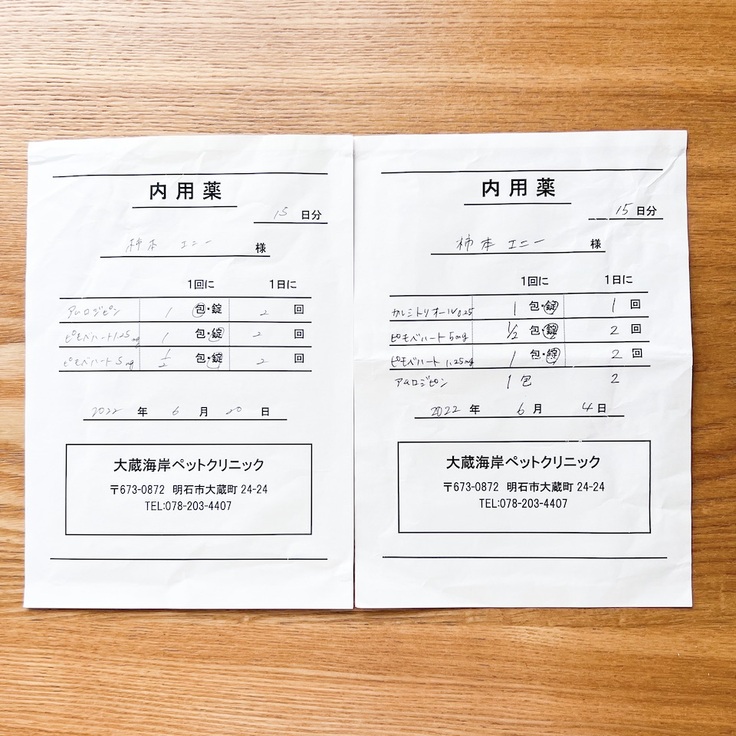 内用薬
15 日分
柿本 エニー 様
1回に 1日に
アムロジピン 1 包・錠 2 回
ピモベハート1.25mg 1 包・錠 2 回
ピモベハート5mg 1/2 包・錠 2 回
2022 年 6 月 20 日
大蔵海岸ペットクリニック
〒673-0872 明石市大蔵町 24-24
TEL:078-203-4407
内用薬
15 日分
柿本 エニー 様
1回に 1日に
カルミトリオール0.25 1 包・錠 1 回
ピモベハート 5mg 1/2 包・錠 2 回
ピモベハート 1.25mg 1 包・錠 2 回
アムロジピン 1 包 2
2022 年 6 月 4 日
大蔵海岸ペットクリニック
〒673-0872 明石市大蔵町 24-24
TEL:078-203-4407